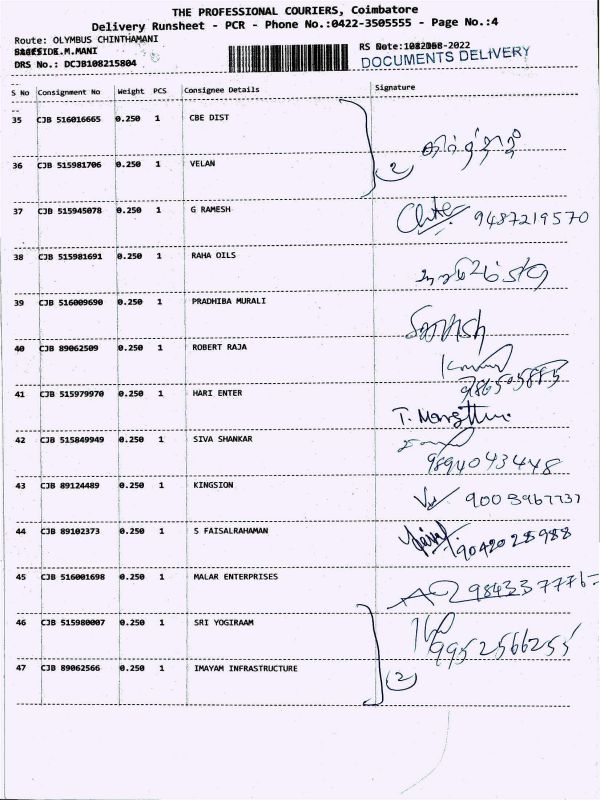 THE PROFESSIONAL COURIERS, Coimbatore
Delivery Runsheet - PCR - Phone No.:0422-3505555 - Page No.:4
Route: OLYMBUS CHINTHAMANI
K.M.MANI
DRS No.: DCJB108215804
DOCUMENTS DELIVERY
S No Consignment No Weight PCS Consignee Details Signature
35 CJB 516016665 0.250 1 CBE DIST
36 CJB 515981706 0.250 1 VELAN
2
37 CJB 515945078 0.250 1 G RAMESH
9487219570
38 CJB 515981691 0.250 1 RAHA OILS
39 CJB 516009690 0.250 1 PRADHIBA MURALI
40 CJB 89062509 0.250 1 ROBERT RAJA
41 CJB 515979970 0.250 1 HARI ENTER
42 CJB 515849949 0.250 1 SIVA SHANKAR
9894043448
43 CJB 89124489 0.250 1 KINGSION
44 CJB 89102373 0.250 1 S FAISALRAHAMAN
9042025988
45 CJB 516001698 0.250 1 MALAR ENTERPRISES
46 CJB 515980007 0.250 1 SRI YOGIRAAM
9952566255
47 CJB 89062566 0.250 1 IMAYAM INFRASTRUCTURE
2